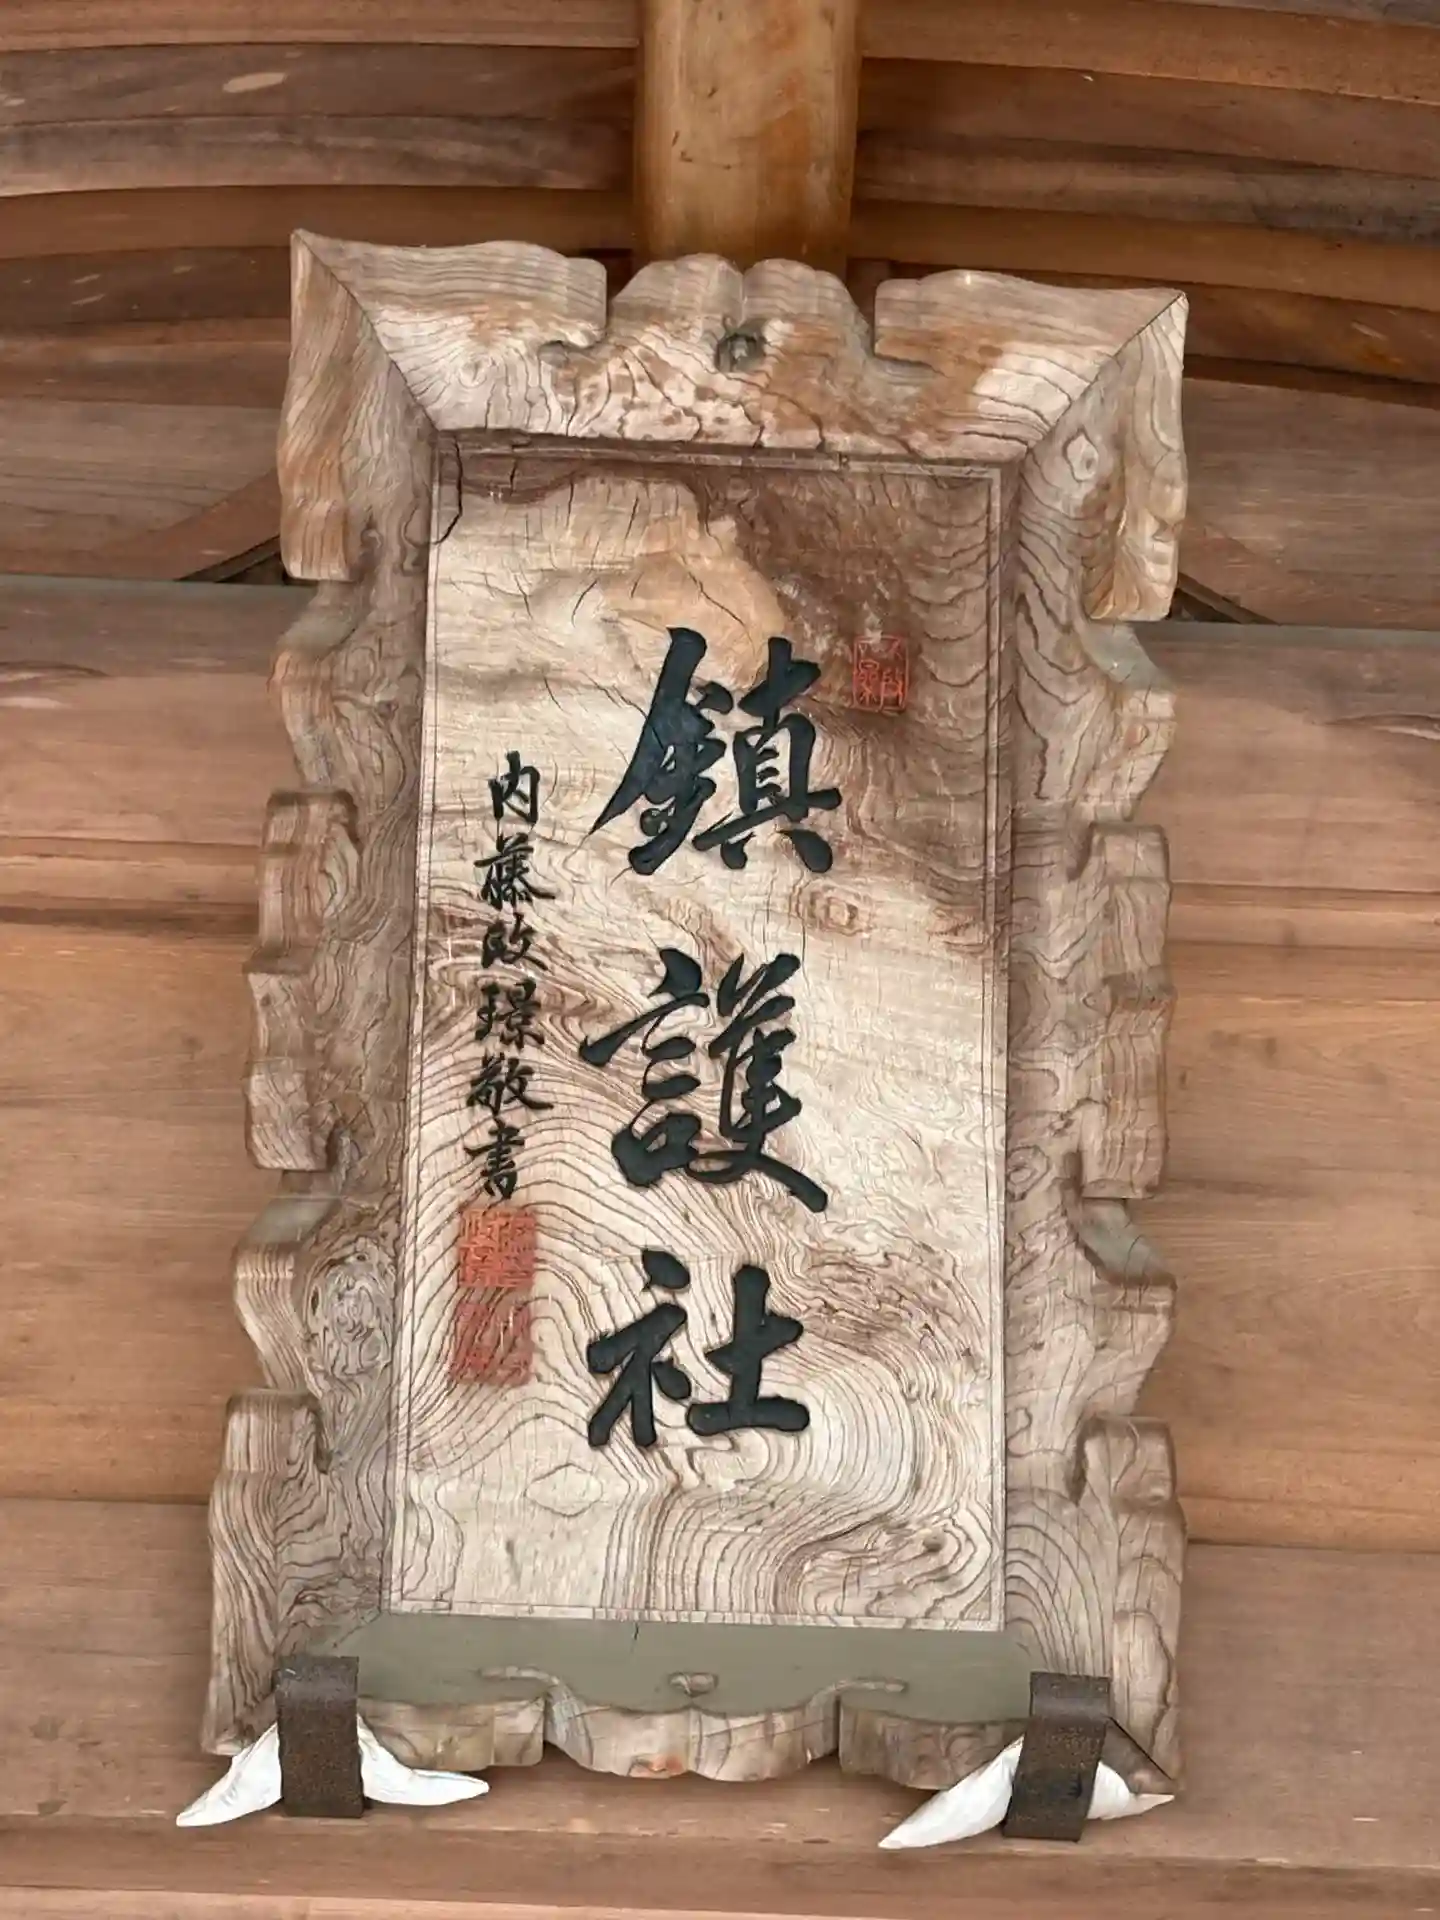 鎮護社
内藤政璟敬書